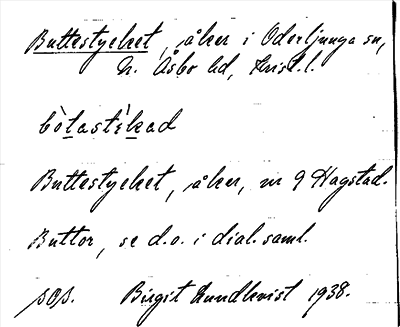 Buttestycket, åker i Oderljunga sn,
N. Åsbo hd, Krist. l.
bòtastìkad
Buttestycket, åker, nr 9 Hagstad.
Buttor, se d.o. i dial. saml.
sOs. Birgit Lundkvist 1938.